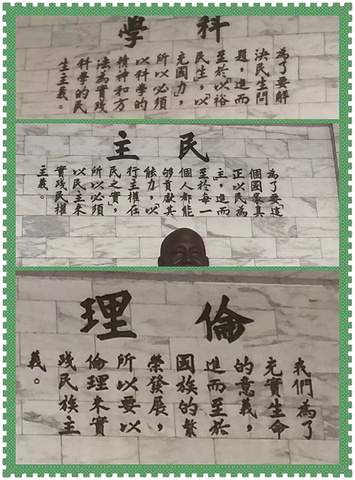 科學
為了要解
決民生問
題，進而
至於以裕
民生，以
充國力，
所以必須
以科學的
精神和方
法為實踐
科學的民
生主義。
民主
為了要這
個國家真
正以民為
主，進而
至於每一
個人都能
夠貢獻其
能力，以
行主權在
民之實，
所以必須
以民主來
實踐民權
主義。
倫理
我們為了
充實生命
的意義，
進而至於
國族的繁
榮發展，
所以要以
倫理來實
踐民族主
義。